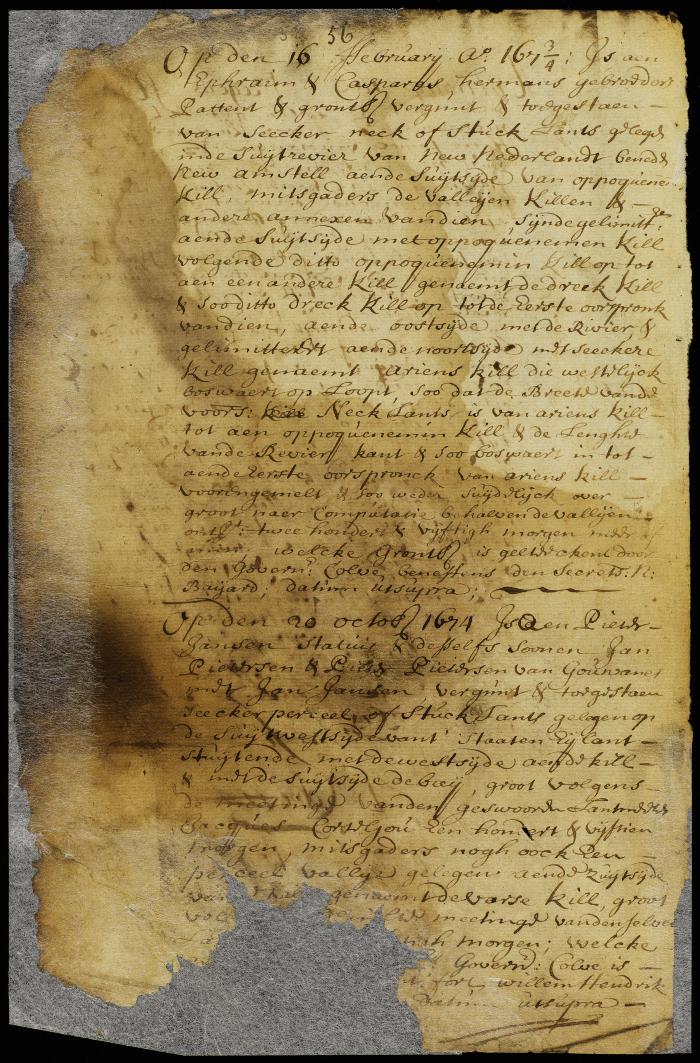 56
Op den 16 Februarij Aº 167¾: Is aen
Ephraim & Casparus hermans gebroeders
Pattent & grontb vergunt & toegestaen —
van seecker neck of stuck Lants gelegen
inde Suytrevier van New Nederlandt beneden
New amstell aende suytsyde van oppoquene-
Kill, mitsgaders de valleyen Killen & —
andere annexen vandien, synde gelimitt:
aende Suijtsijde met oppoquenemen Kill
volgende ditto oppoquenemin Kill op tot
aen een andere Kill genaemt de dreck Kill
& soo ditto dreck Kill op totde Eerste oorspronk
vandien, aende oostsyde met de Rivier &
gelimitteert aende noortsyde met seeckere
Kill genaemt Ariens Kill die westelyck
boswaert op Loopt, soo dat de Breete vande
voors: Neck Lants is van ariens Kill —
tot aen oppoquenemin Kill & de Lenghte
vande Revier kant & soo boswaert in tot —
aende Eerste oorspronck van ariens Kill —
voorengemelt & soo weder suydelyck over —
groot naer Computatie behalven de vallijen —
ontr: twee hondert & vyftigh morgen meer of
min, welcke Grontb is geteeckent door
den Govern: Colve benessens den Secrets: N:
Bayard; datum utsupra;
Op den 20 octob 1674 Is aen Pieter —
Jansen Staluis & desselfs soonen Jan
Pietersen & Pieter Pietersen van Gouwanes
met Jan Jansen, vergunt & toegestaen
seecker perceel of stuck Lants gelegen op
de Suytwestsyde vant Staaten Eylant —
stuytende met de westsyde aende kill —
& met de Suytsyde de baey, groot volgens —
de meetinge vanden geswooren Lantmeeter
Jacques Corteljou Een hondert & vyftien
morgen, mitsgaders nogh oock Een —
perceel vallye gelegen aende zuytsyde
van genaemt de varse Kill, groot
vol meetinge vanden selven
La morgen; welcke
Govern: Colve is —
fort willem Hendrik
Datum utsupra —